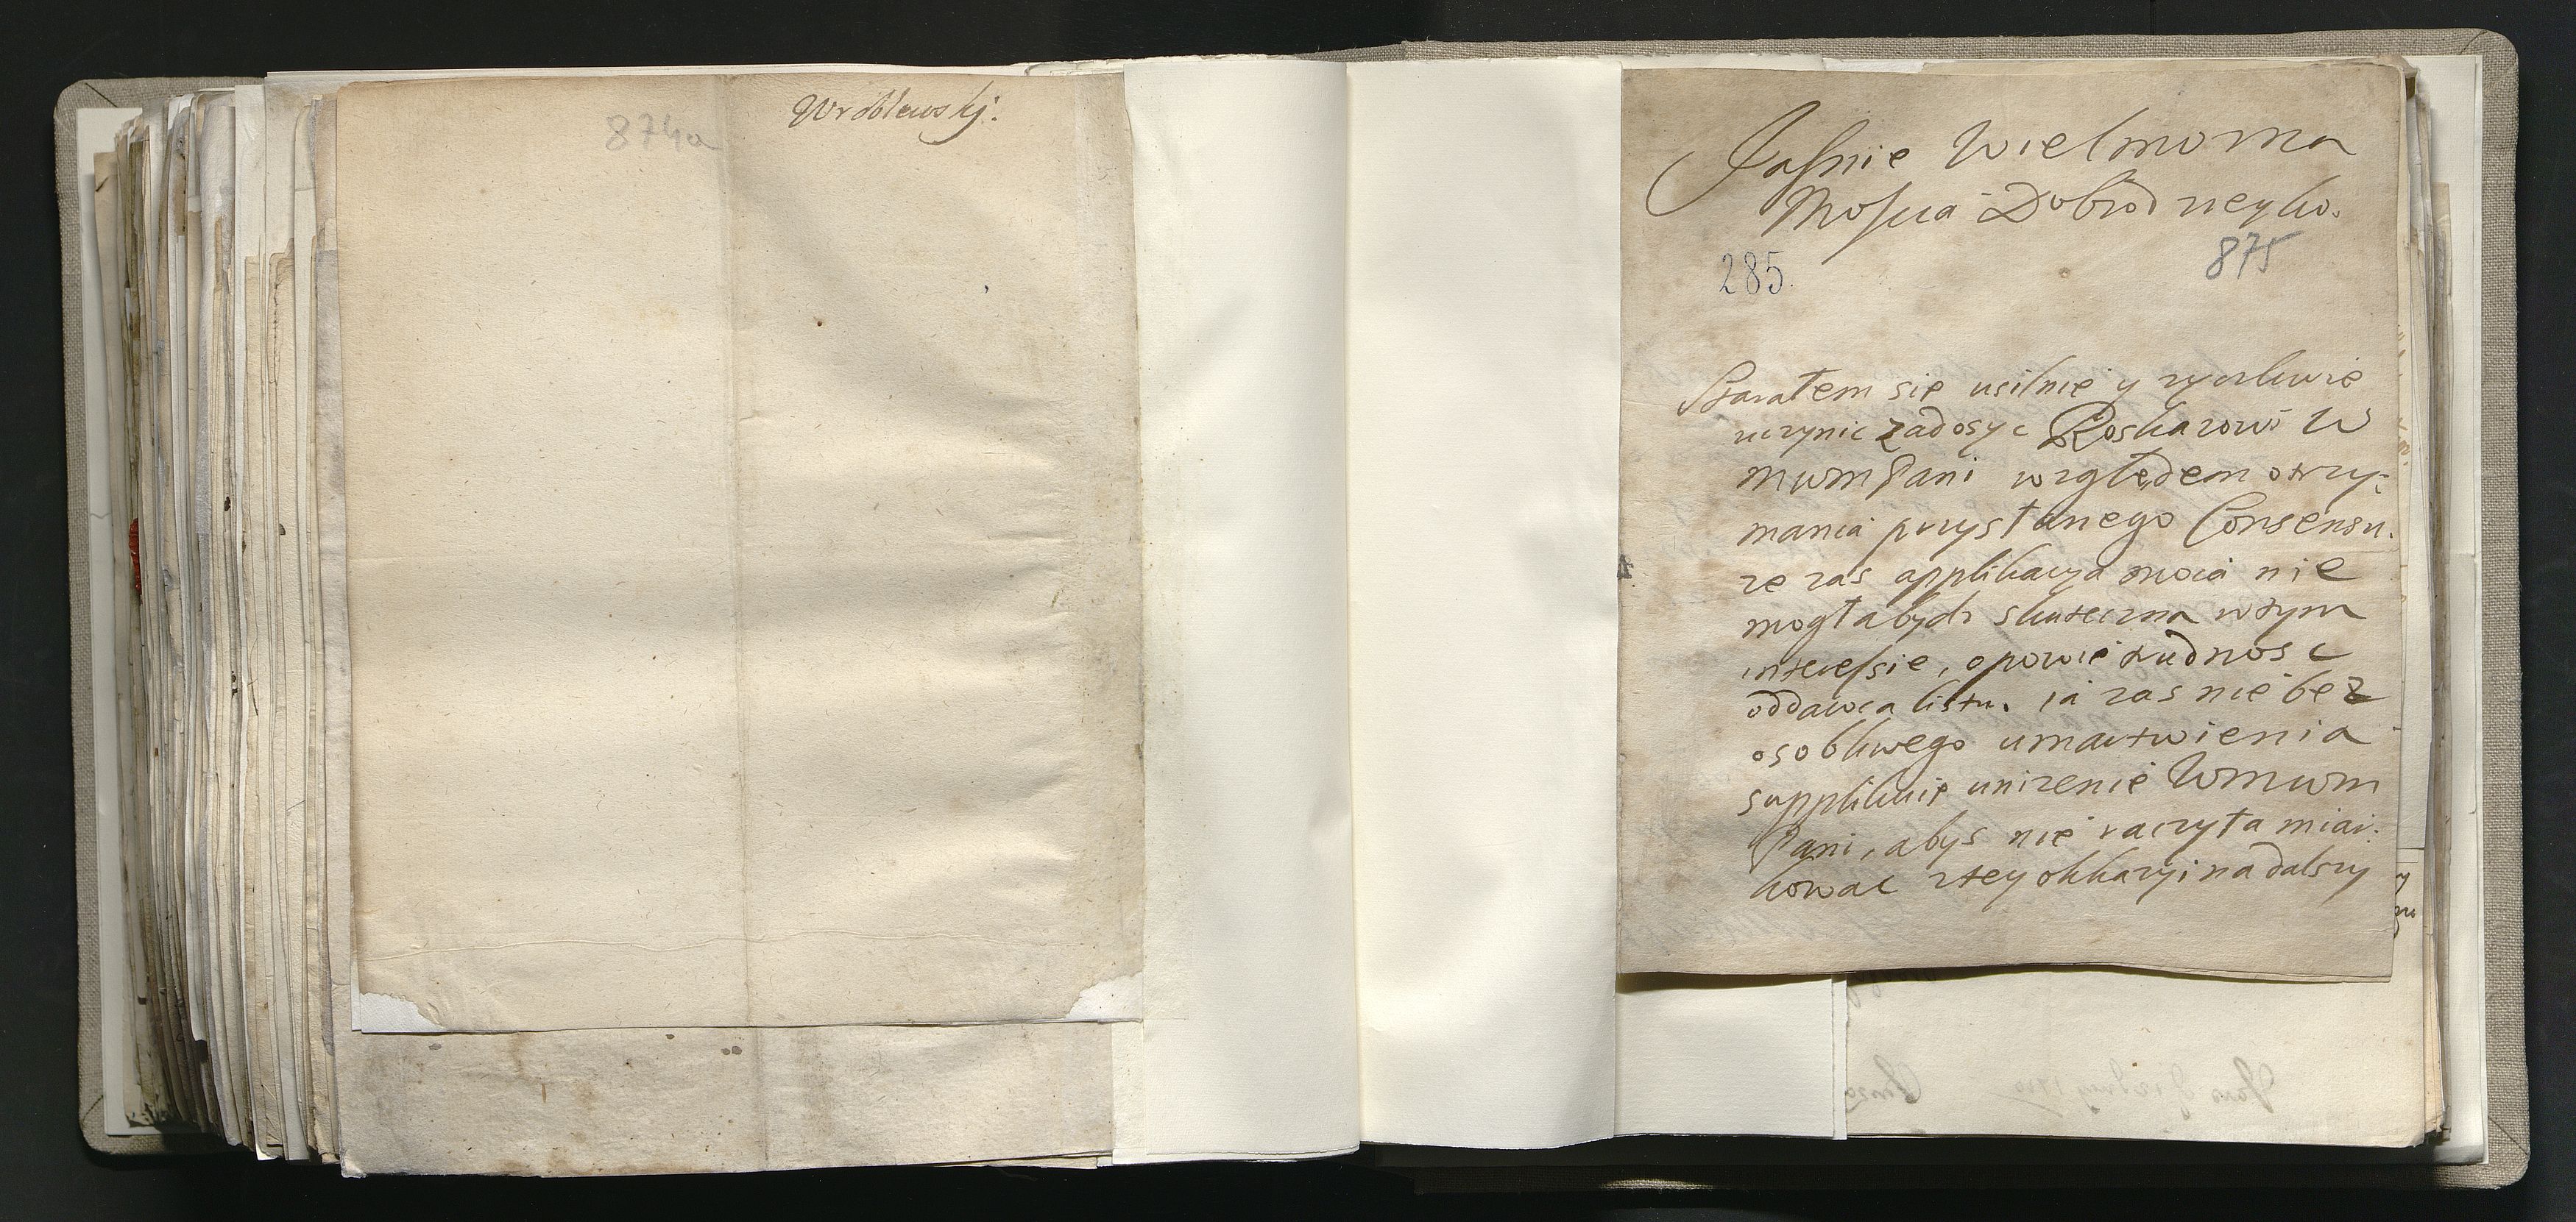 874a
Wroblewskj:
Jasnie Wielmozna
Moscia Dobrodzieyko.
285.
875
Starałem się usilnie y zyczliwie
uczynic zadosyc Roskazowi W
mwmPani względem otrzy-
mania przysłanego Consensu.
ze zas applikacya moia nie
mogła bydz skuteczna w tym
interessie, opowie trudnosc
oddawca listu. ia zas nie bez
osobliwego umartwienia
supplikuię unizenie Wmwm
Pani, abys nie raczyła miar-
kowac z tey okkazyi na dalszy